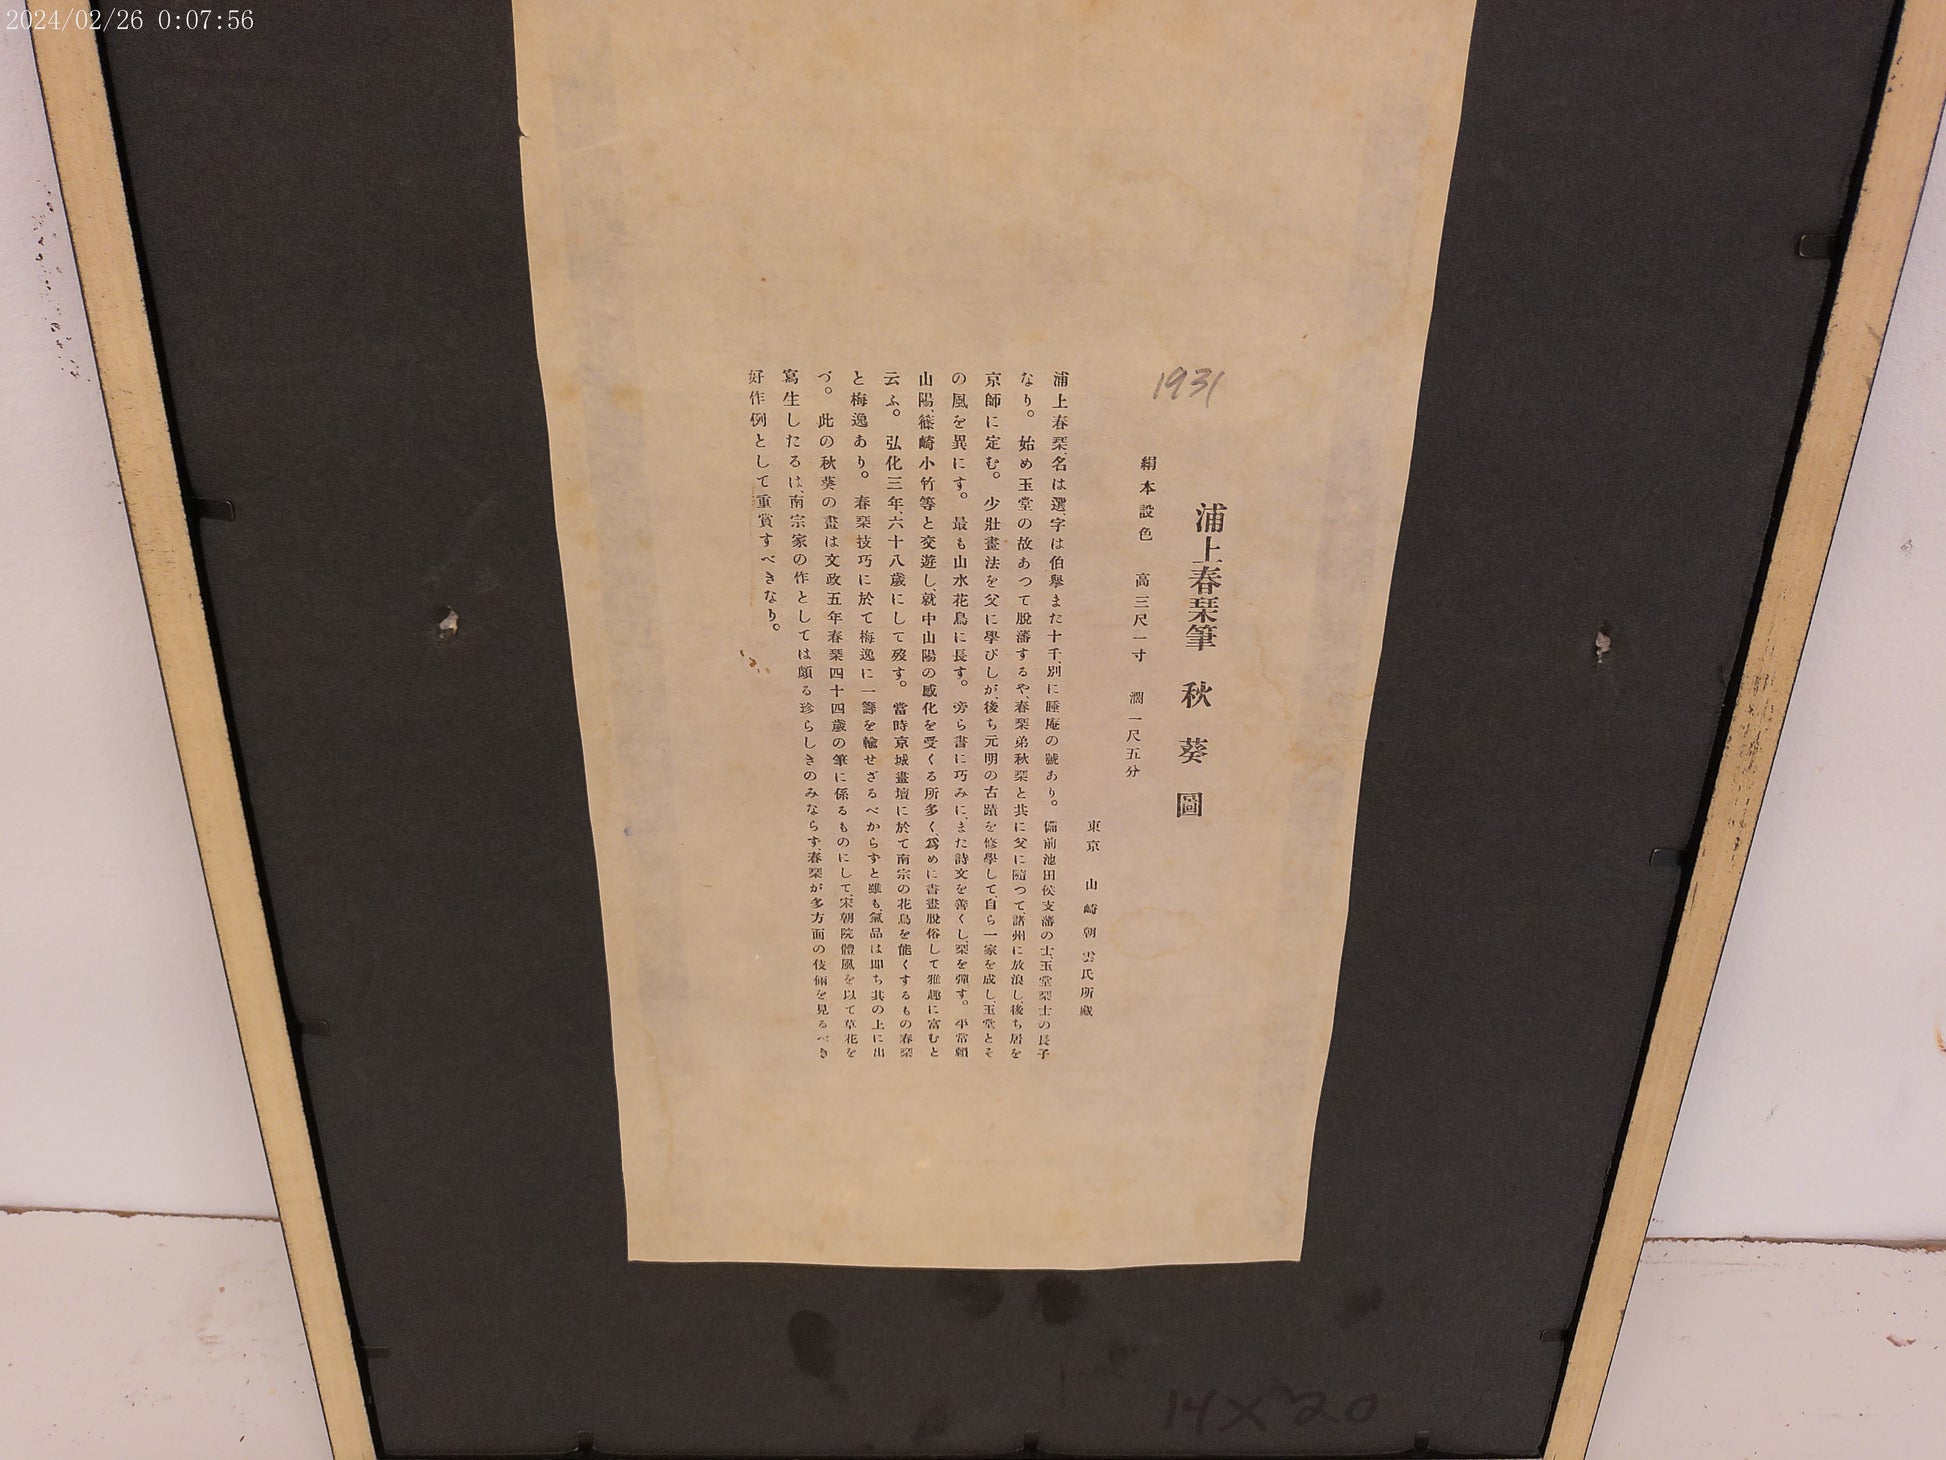 2024/02/26 0:07:56
1931
浦上春琹筆 秋葵圖
絹本設色 高三尺一寸 濶一尺五分
東京 山崎朝雲氏所藏
浦上春琹、名は選、字は伯擧また十千、別に睡庵の號あり。備前池田侯支藩の士、玉堂琹士の長子
なり。始め玉堂の故あつて脫藩するや、春琹弟秋琹と共に父に隨つて、諸州に放浪し、後ち居を
京師に定む。少壯畫法を父に學びしが、後ち元明の古蹟を修學して、自ら一家を成し、玉堂とそ
の風を異にす。最も山水花鳥に長す。旁ら書に巧みに、また詩文を善くし、琹を彈す。平常賴
山陽、篠崎小竹等と交遊し、就中山陽の感化を受くる所多く、爲めに書畫脫俗して雅趣に富むと
云ふ。弘化三年、六十八歲にして歿す。當時京城畫壇に於て南宗の花鳥を能くするもの春琹
と梅逸あり。春琹技巧に於て梅逸に一籌を輸せざるべからずと雖も、氣品は卽ち其の上に出
づ。此の秋葵の畫は文政五年春琹四十四歲の筆に係るものにして、宋朝院體風を以て草花を
寫生したるは、南宗家の作としては頗る珍らしきのみならす、春琹が多方面の伎倆を見るべき
好作例として重賞すべきなり。
14 X 20